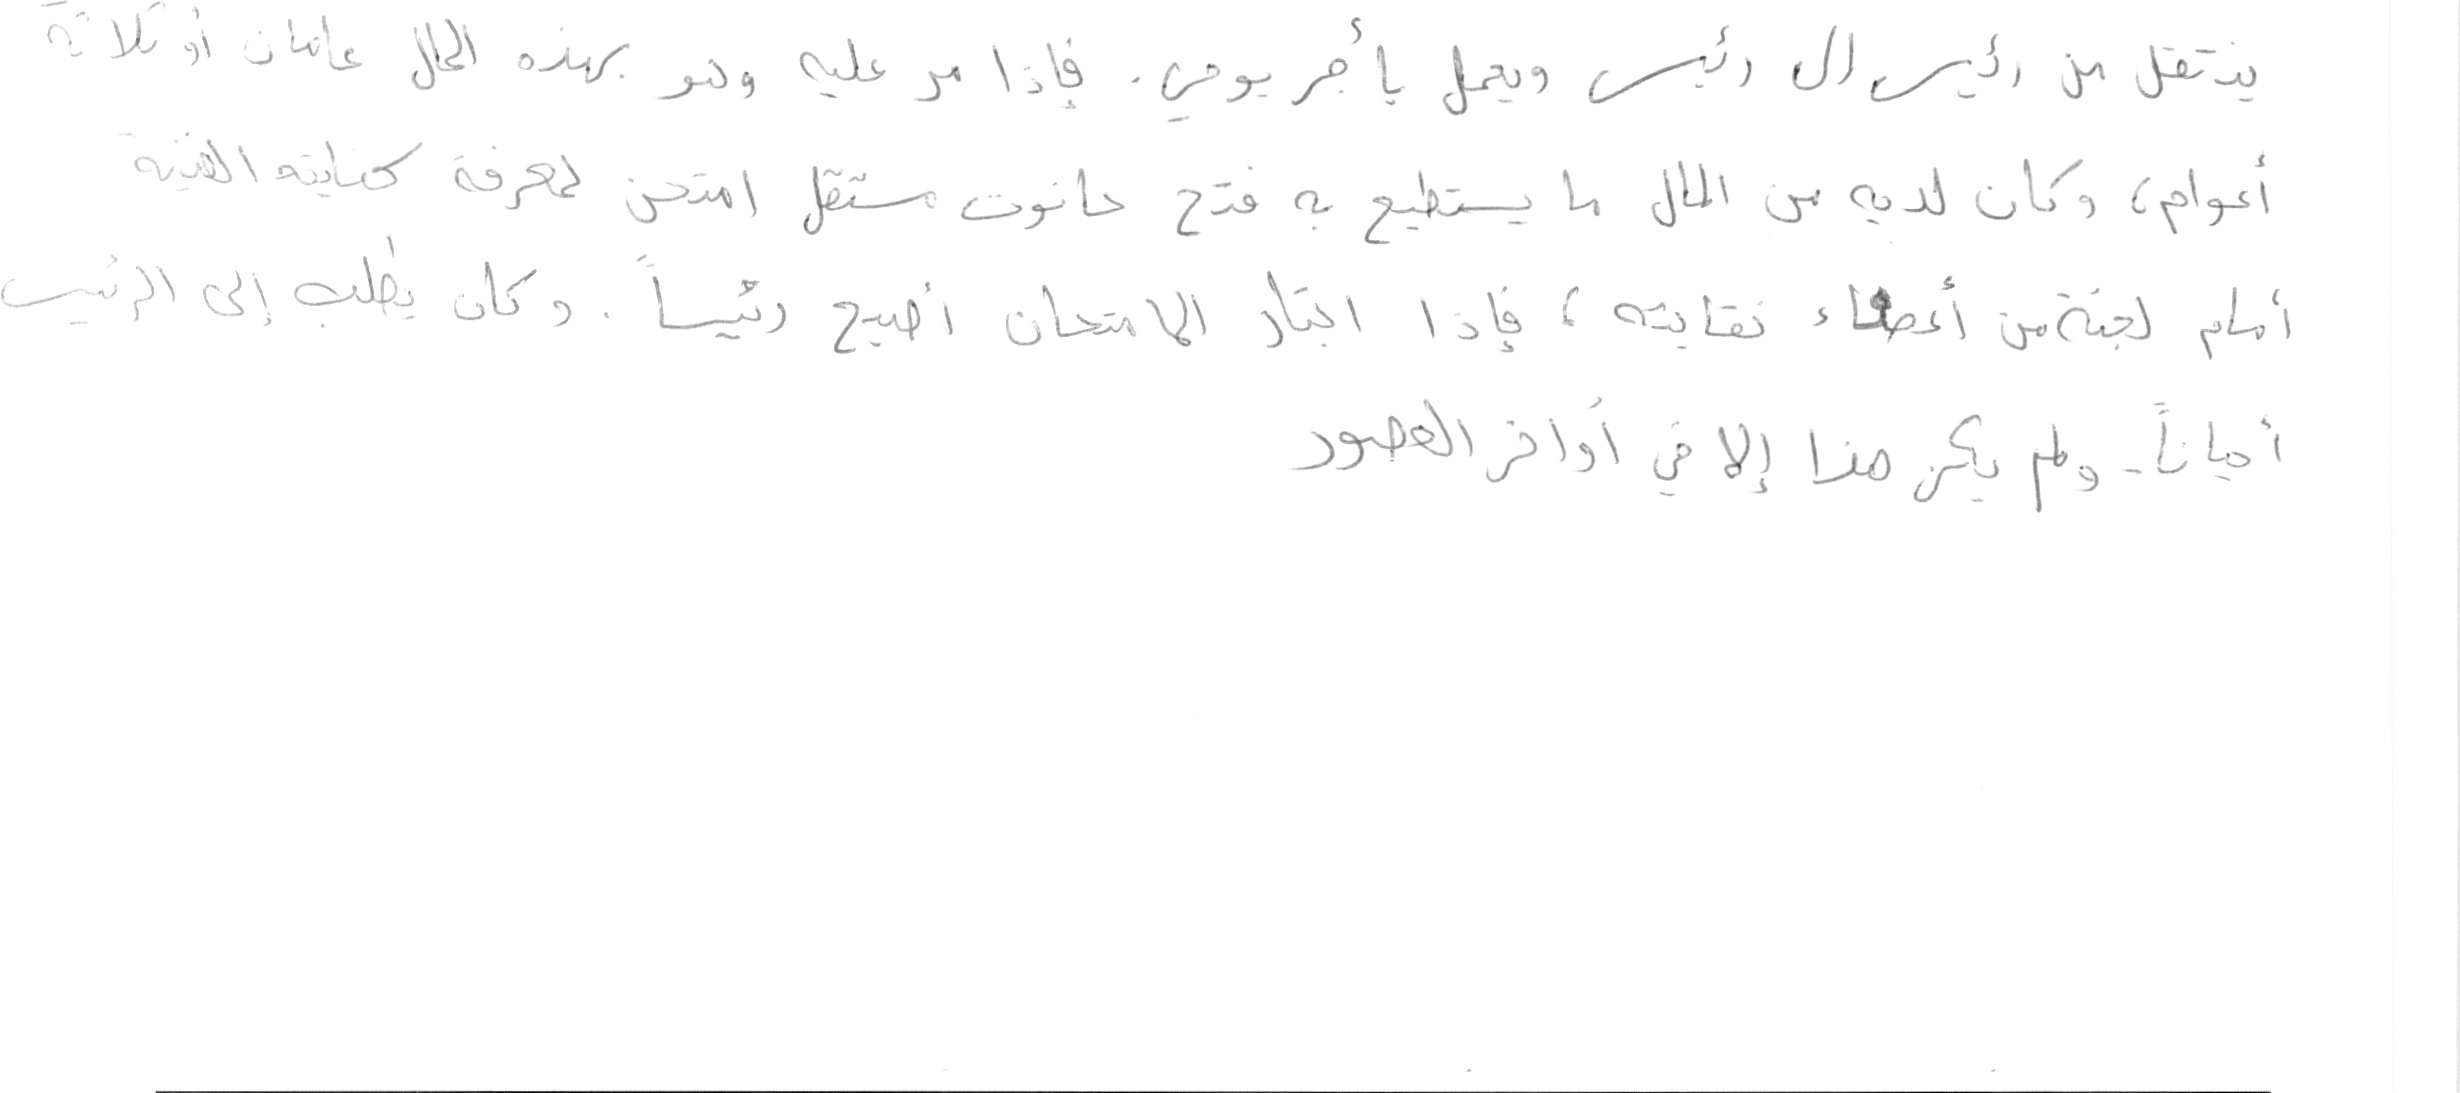 ينتقل من رئيس ال رئيس ويعمل بأجر يومي. فإذا مر عليه وهو بهذه الحال عامان أو ثلاثة
أعوام، وكان لديه من المال ما يستطيع به فتح حانوت مستقل امتحن لمعرفة كفايته الفنية
أمام لجنة من أعضاء نقابته، فإذا اجتاز الامتحان أصبح رئيساً. وكان يطلب إلى الرئيس
أحياناً- ولم يكن هذا إلا في أواخر العصور